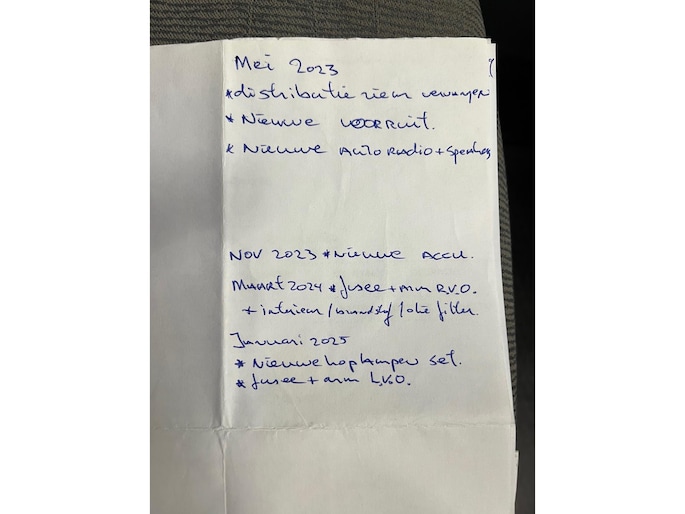 Mei 2023
* distributie riem vervangen
* Nieuwe VOORRUIT.
* Nieuwe AUTO RADIO + Speakers
NOV 2023 * Nieuwe ACCU.
Maart 2024 * fusee + arm R.V.O.
* interieur / brandstof / olie filter.
Januari 2025
* Nieuwe koplampen set.
* fusee + arm L.V.O.